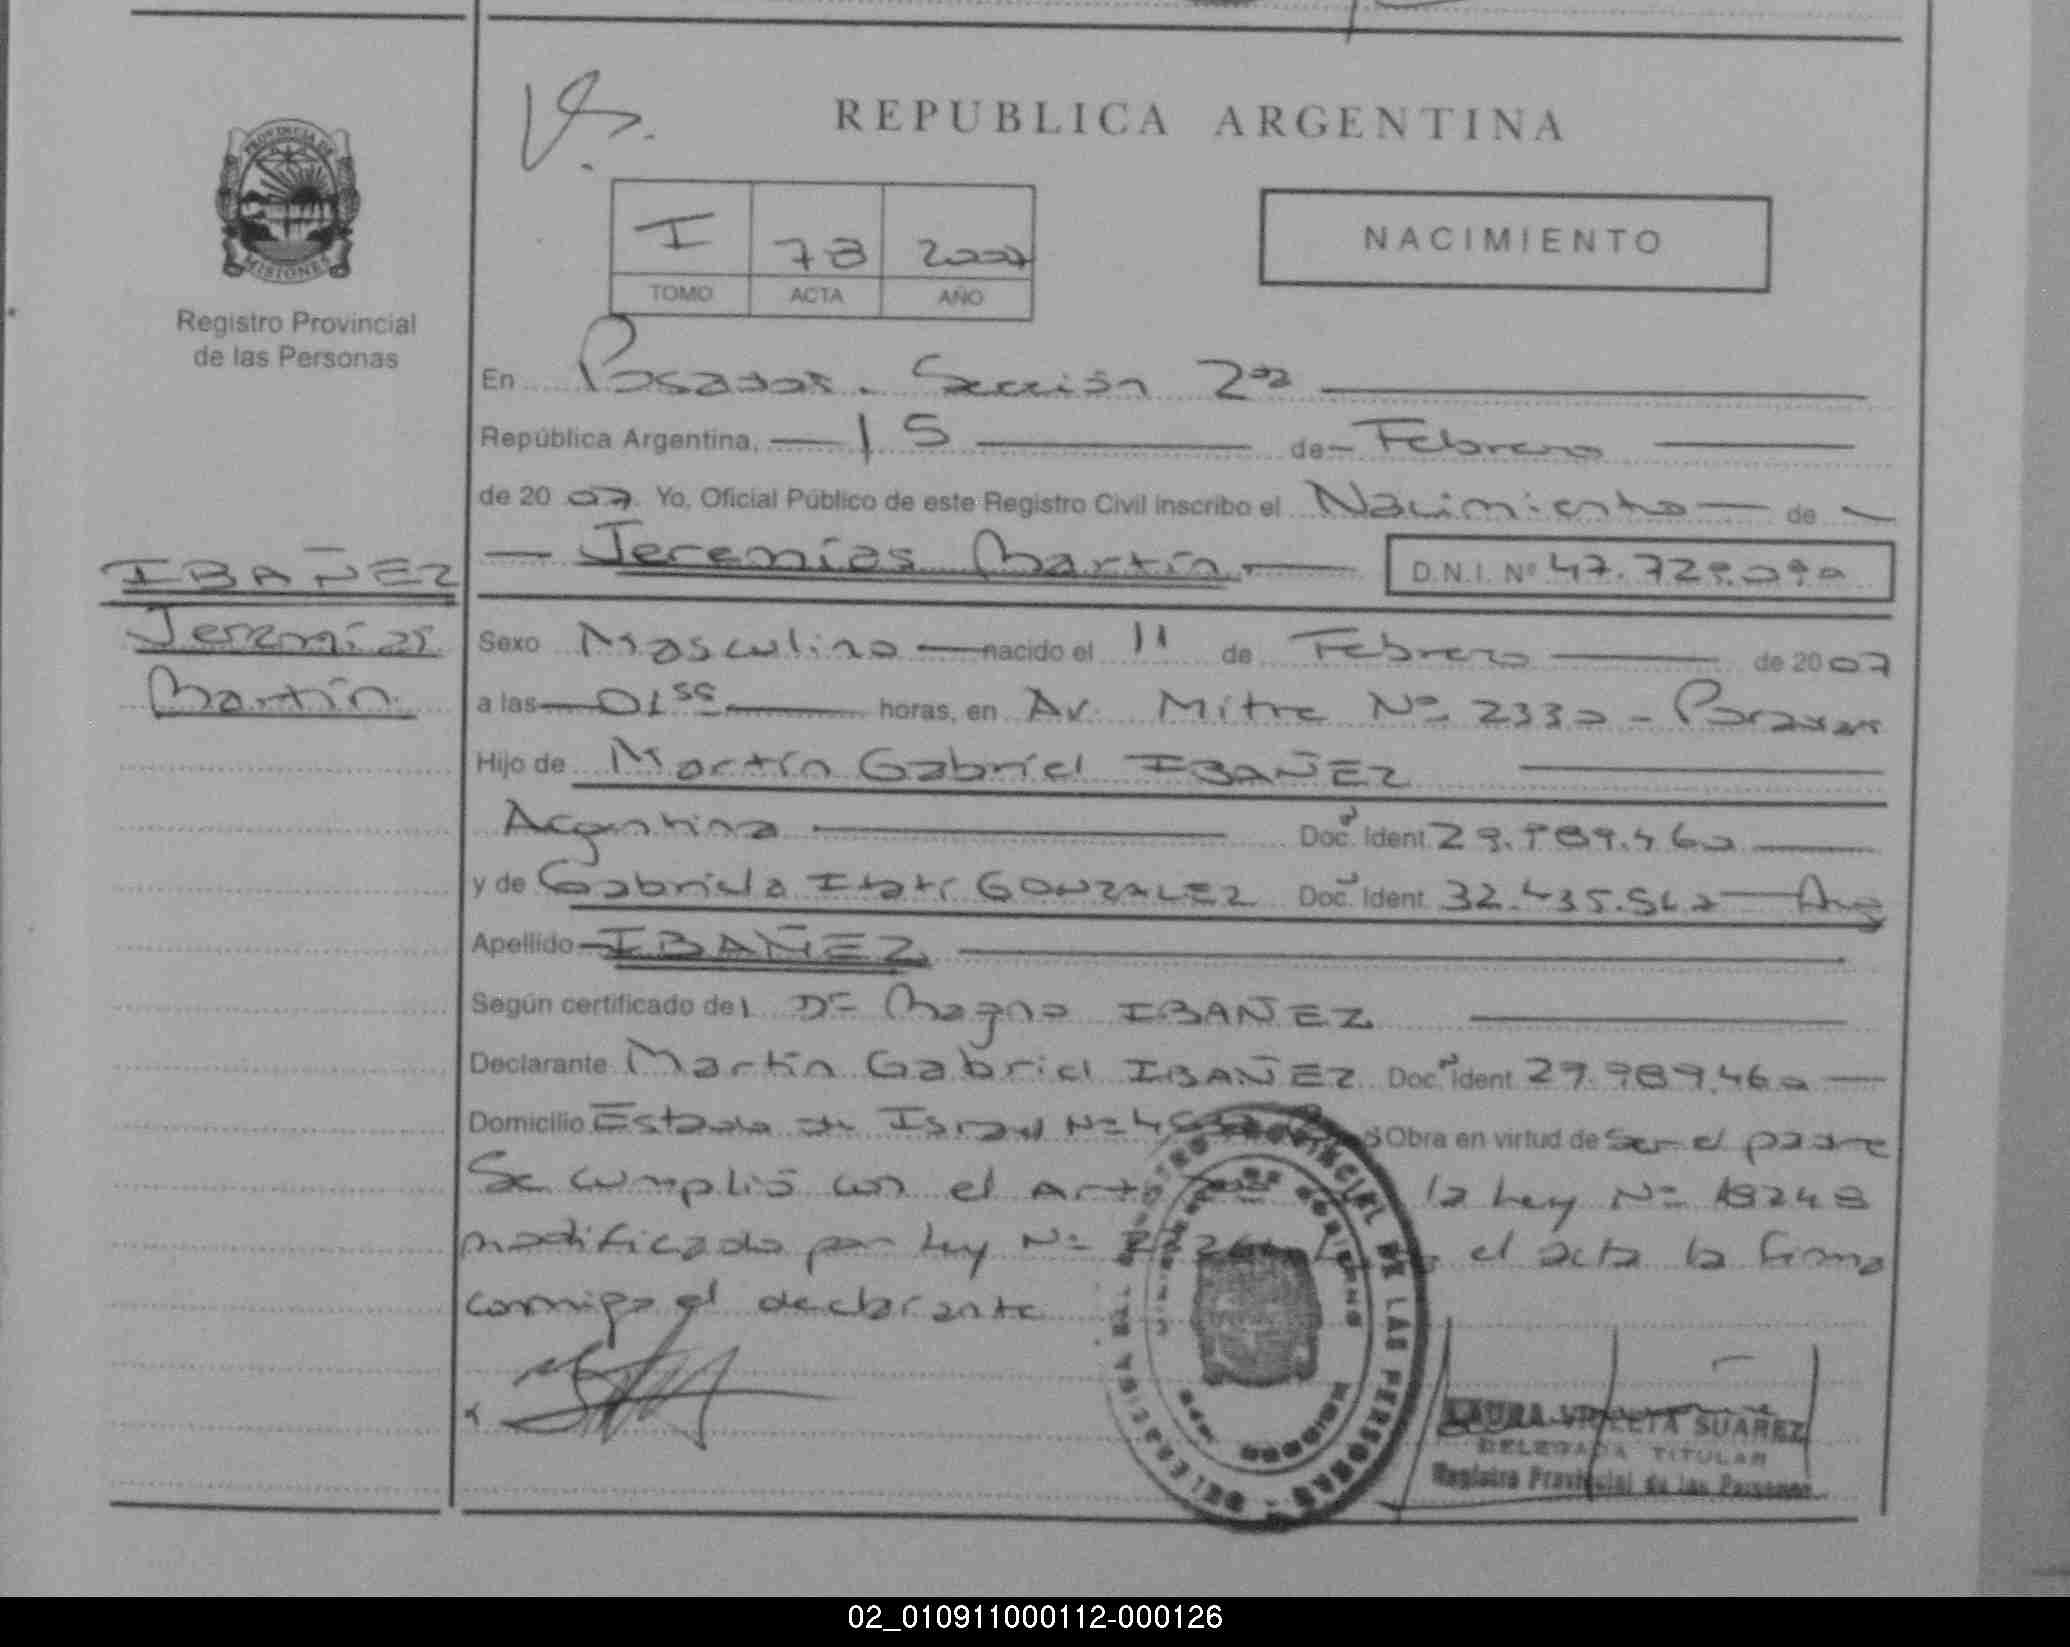 REPUBLICA ARGENTINA
PROVINCIA DE
MISIONES
Registro Provincial
de las Personas
I 78 2007
TOMO ACTA AÑO
NACIMIENTO
En Posadas. Sección 2da
República Argentina, 15 de Febrero
de 2007 Yo, Oficial Público de este Registro Civil inscribo el Nacimiento de
Jeremías Martín D.N.I. Nº 47.729.090
IBAÑEZ
Jeremías
Martín
Sexo Masculino nacido el 11 de Febrero de 2007
a las 01 55 horas, en Av. Mitre Nº 2330 - Posadas
Hijo de Martín Gabriel IBAÑEZ
Argentina Doc. Ident. 29.989.460
y de Gabriela Itatí GONZALEZ Doc. Ident. 32.435.562 Arg
Apellido IBAÑEZ
Según certificado del Dr Magno IBAÑEZ
Declarante Martín Gabriel IBAÑEZ Doc. Ident 29.989.460
Domicilio Estado de Israel Nº Obra en virtud de Ser el padre
Se cumplió con el Art la Ley Nº 18248
modificado por Ley Nº el acta la firma
conmigo el declarante
REGISTRO PROVINCIAL DE LAS PERSONAS
LAURA VIOLETA SUAREZ
DELEGADA TITULAR
Registro Provincial de las Personas
02_010911000112-000126